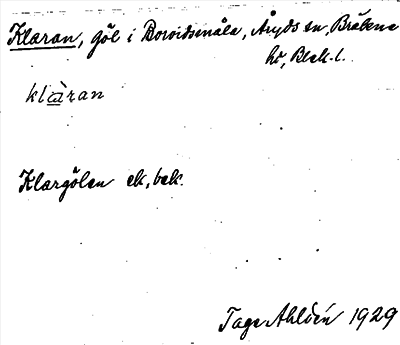 Klaran, göl i Borvidsmåla, Åryds sn, Bräkne
hd, Blek. l.
klàran
Klargölen ek, bek.
Tage Ahldén 1929